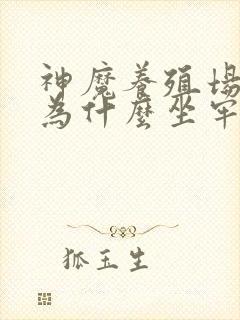 神魔養殖場
為什麼坐牢
狐玉生